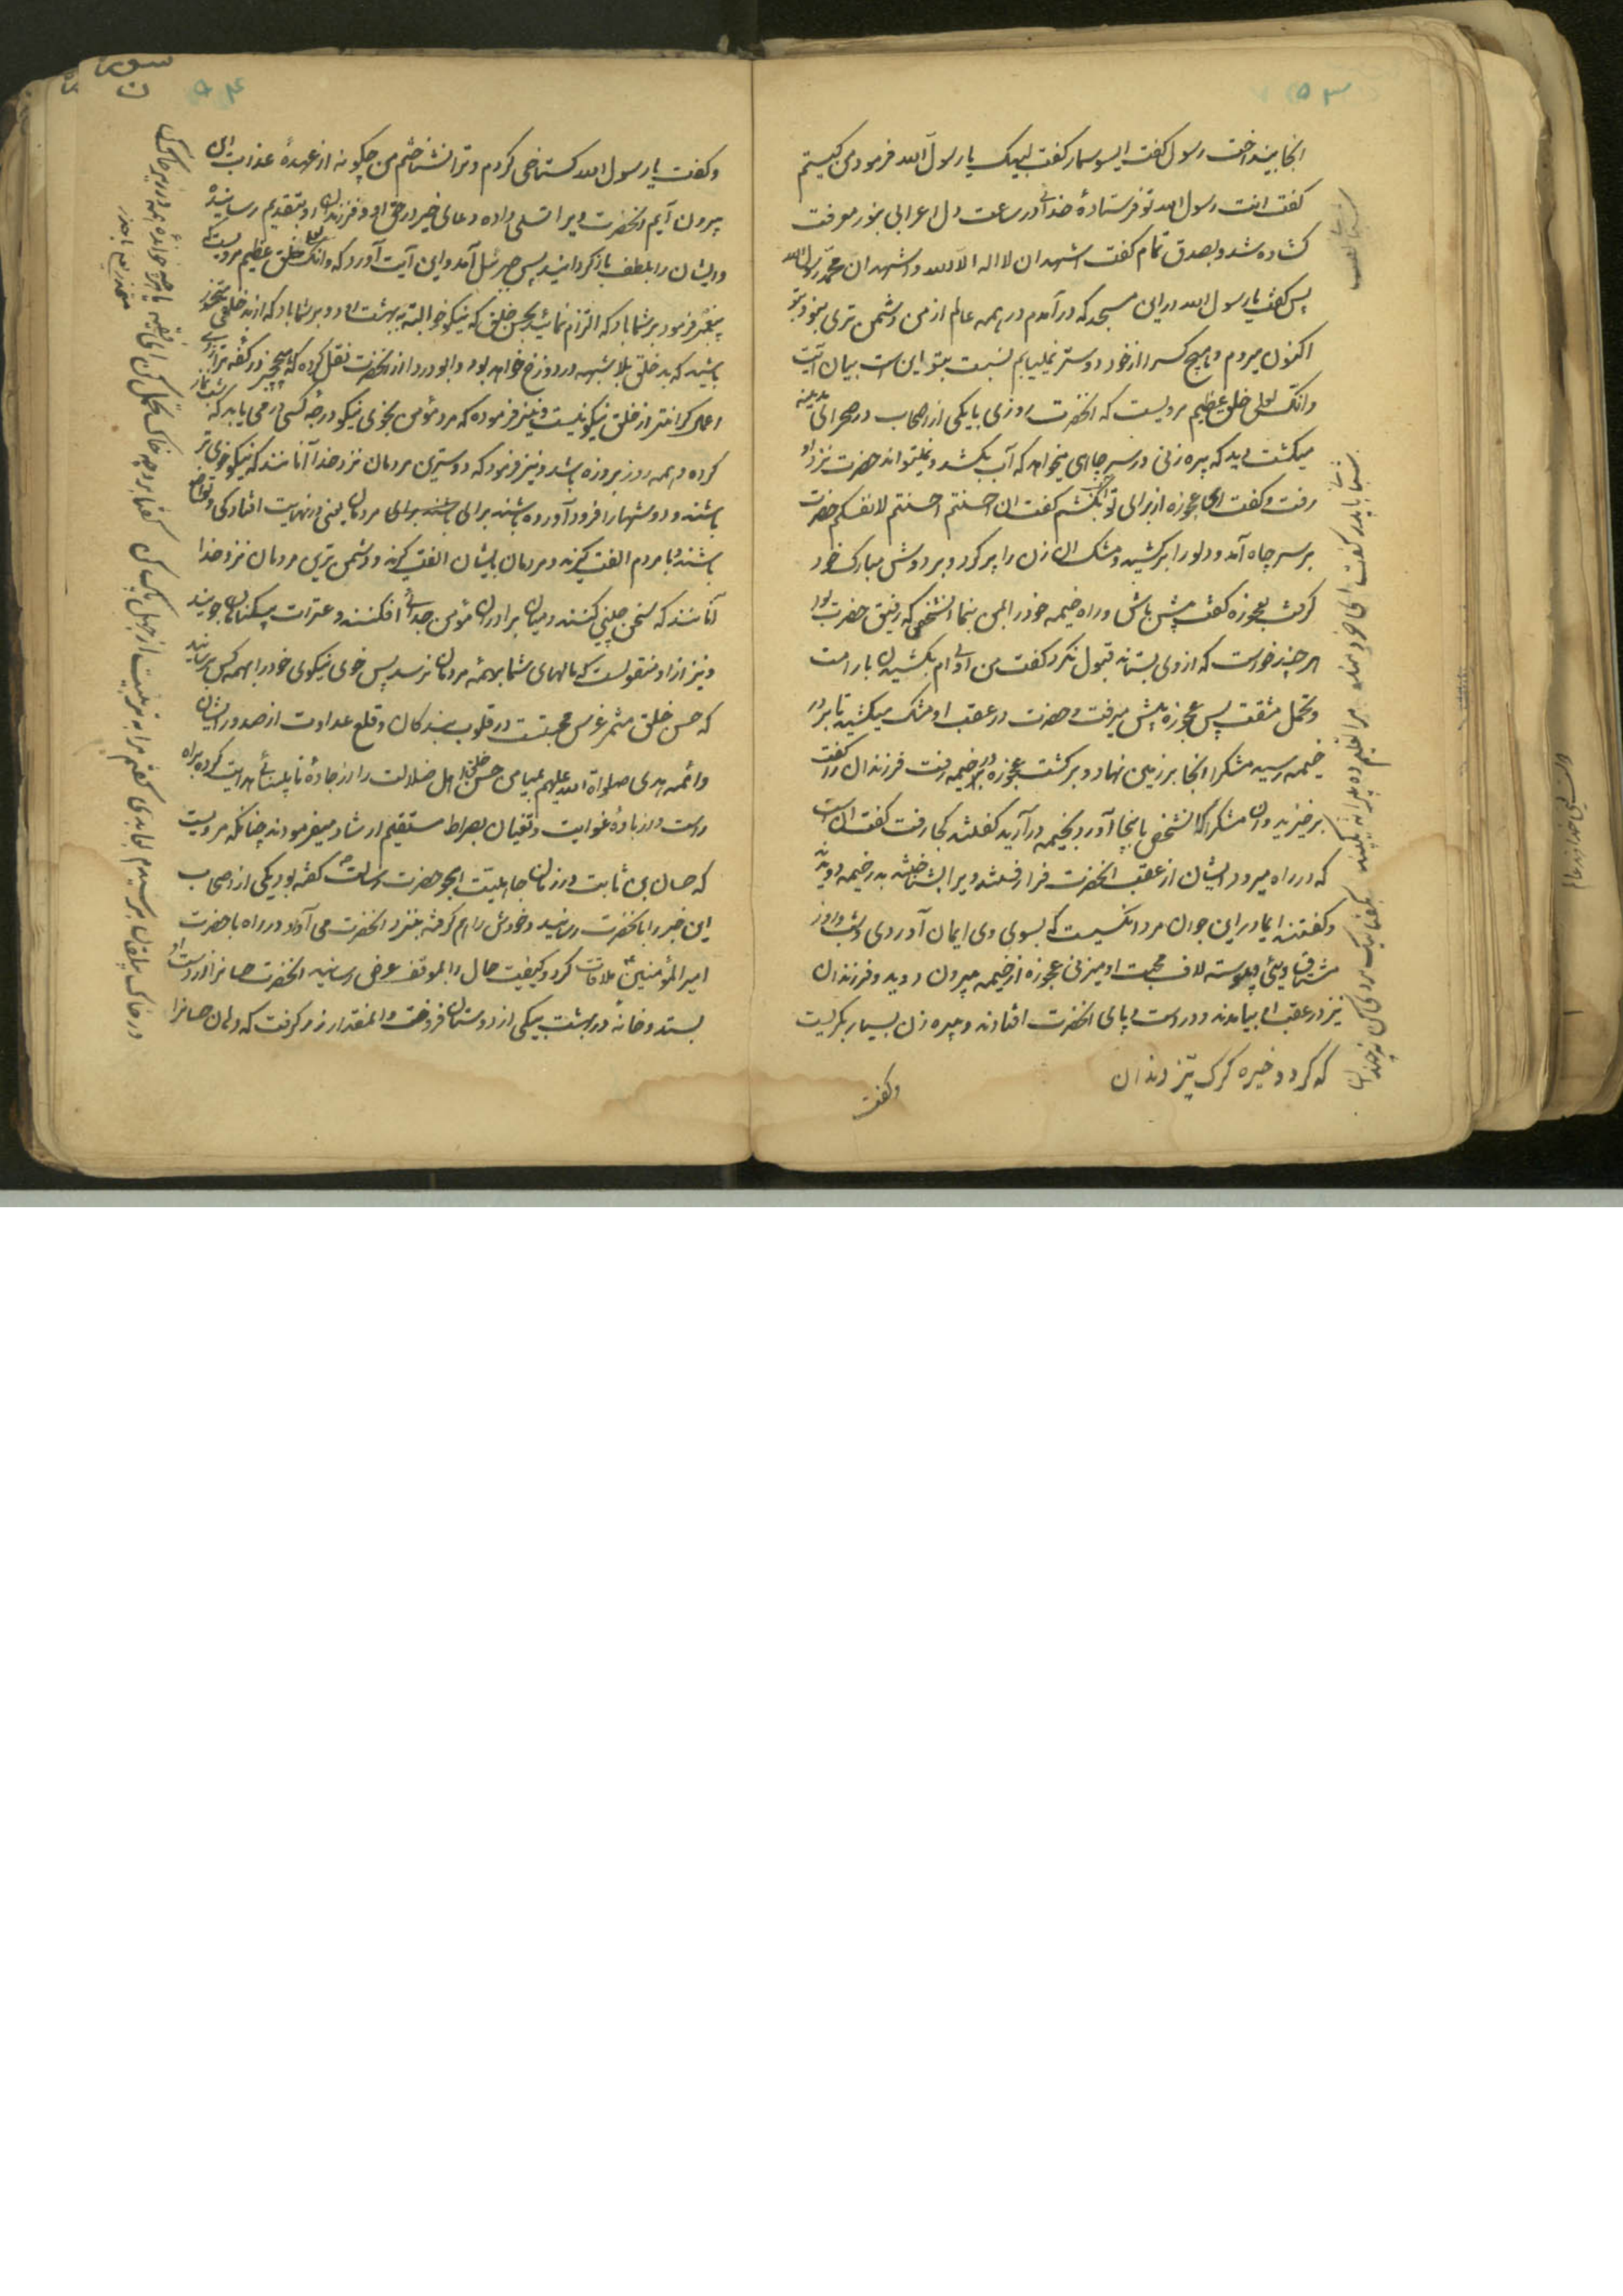 ۵۳
انجا بینداخت رسول گفت ایسوسمار گفت لبیک یا رسول الله فرمود من کیستم
گفت انت رسول الله تو فرستادهٔ خدائی در ساعت دل اعرابی بنور معرفت
گشاده شد و بصدق تمام گفت اشهد ان لا اله الا الله و اشهد ان محمد رسول الله
پس گفت یا رسول الله در این مسجد که درآمدم در همه عالم از من دشمن تری نبود بتو
اکنون میروم و هیچ کس را از خود دوستر نمیابم نسبت بتو این است بیان آیت
وانک لعلی خلق عظیم مرویست که انحضرت روزی با یکی از اصحاب در صحرای مدینه
میگشت دید که پیره زنی در سر چاهی میخواهد که آب بکشد و نمیتواند حضرت نزد او
رفت و گفت ای عجوزه از برای تو آب بکشم گفت ان احسنتم احسنتم لانفسکم حضرت
بر سر چاه آمد و دلو را برکشید و مشک ان زن را پر کرد و بر دوش مبارک خود
گرفت بعجوزه گفت پیش باش و راه خیمه خود را بمن بنما انشخصی که رفیق حضرت بود
هر چند خواست که از وی بستاند قبول نکرد گفت من اولی ام بکشیدن بار امت
و تحمل مشقت پس عجوزه پیش میرفت و حضرت در عقب او مشک میکشید تا بر در
خیمه رسید مشک را انجا بر زمین نهاد و برگشت عجوزه در خیمه رفت فرزندان را گفت
برخیزید و ان مشک را که انشخص باینجا آورد بخیمه درآرید گفتند کجا رفت گفت ان است
که در راه میرود ایشان از عقب انحضرت فراز رفتند ویرا بشناختند بدر خیمه دویدند
و گفتند ایمادر این جوان مرد انکسیست که بسوی وی ایمان آوردی و شب و روز
مشتاق ویئی و پیوسته لاف محبت او میزنی عجوزه از خیمه بیرون دوید و فرزندان
نیز در عقب او بیامدند و در دست و پای انحضرت افتادند و پیره زن بسیار بگریست
که گردد خیره گرگ تیز دندان
وگفت
۵۴
و گفت یا رسول الله گستاخی کردم و ترا نشناختم من چگونه از عهدهٔ عذاب ان
بیرون آیم انحضرت ویرا تسلی داده دعای خیر در حق او و فرزندان او بتقدیم رسانیده
و ایشان را بلطف بازگردانید پس جبرئیل آمد و این آیت آورد که وانک لعلی خلق عظیم مرویست که
پیغمبر فرمود بر شما باد که التزام نمائید بحسن خلق که نیکوخو البته به بهشت رود و بر شما باد که از بد خلقی محترز
باشید که بد خلق بلا شبهه در دوزخ خواهد بود و ابو دردا از انحضرت نقل کرده که هیچ چیز در کفه ترازوی
اعمال گرانتر از خلق نیکو نیست و نیز فرموده که مرد مؤمن بخوی نیکو درجه کسی درمی یابد که شب نماز
کرده و همه روز بروزه باشد و نیز فرمود که دوسترین مردمان نزد خدا آنانند که نیکو خوی تر
باشند و دوشها را فرود آورده باشند برای مردمان یعنی در نهایت افتادگی و تواضع
باشند و با مردم الفت گیرند و مردمان بایشان الفت گیرند و دشمن ترین مردمان نزد خدا
آنانند که سخن چینی کنند و میان برادران مؤمن جدائی افکنند و عثرات بیگناهان جویند
و نیز از او منقولست که مالهای شما بهمهٔ مردمان نرسد پس خوی نیکوی خود را بهمه کس برسانید
که حسن خلق مثمر غرس محبتست در قلوب بندگان و قلع عداوت از صدور ایشان
و ائمه هدی صلواة الله علیهم بمیامن حسن خلق اهل ضلالت را از جادهٔ ناپسندی هدایت کرده براه
راست و از بادهٔ غوایت و تغیان بصراط مستقیم ارشاد میفرمودند چنانکه مرویست
که حسان بن ثابت در زمان جاهلیت هجو حضرت رسالت گفته بود یکی از اصحاب
این خبر را بانحضرت رسانید و خودش را هم گرفته بنزد انحضرت می آورد در راه با حضرت
امیر المؤمنین ملاقات کرد و کیفیت حال را بموقف عرض رسانید انحضرت حسان را از دست او
بستد و خانه در بهشت بیکی از دوستان فروخت و انمقدار زر گرفت که دهان حسان را